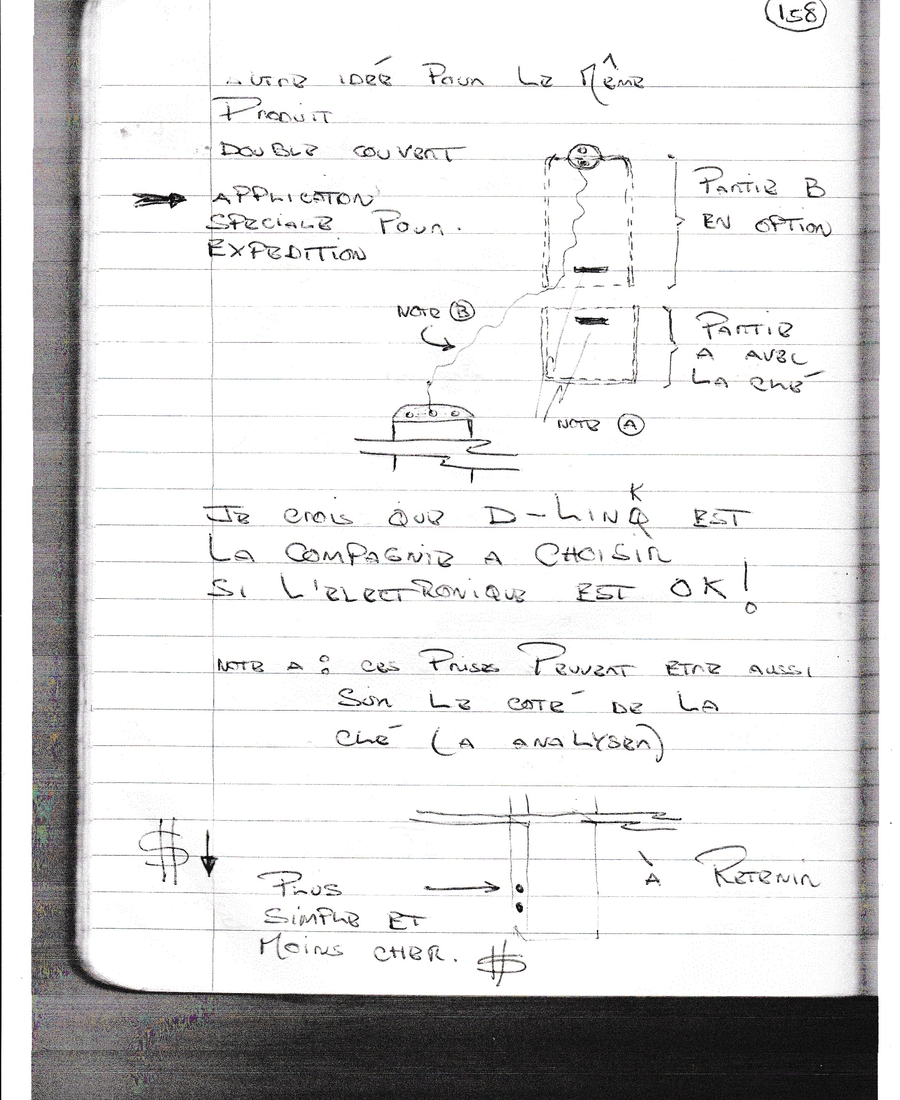 158
AUTRE IDÉE POUR LE MÊME
PRODUIT
DOUBLE COUVERT
APPLICATION
SPECIALE POUR.
EXPEDITION
PARTIE B
EN OPTION
NOTE B
PARTIE
A AVEC
LA CLÉ
NOTE A
K
JE CROIS QUE D-LINQ EST
LA COMPAGNIE A CHOISIR
SI L'ELECTRONIQUE EST OK!
NOTE A : CES PRISES PEUVENT ETRE AUSSI
SUR LE COTÉ DE LA
CLÉ (A ANALYSER)
$
À RETENIR
PLUS
SIMPLE ET
MOINS CHER. $